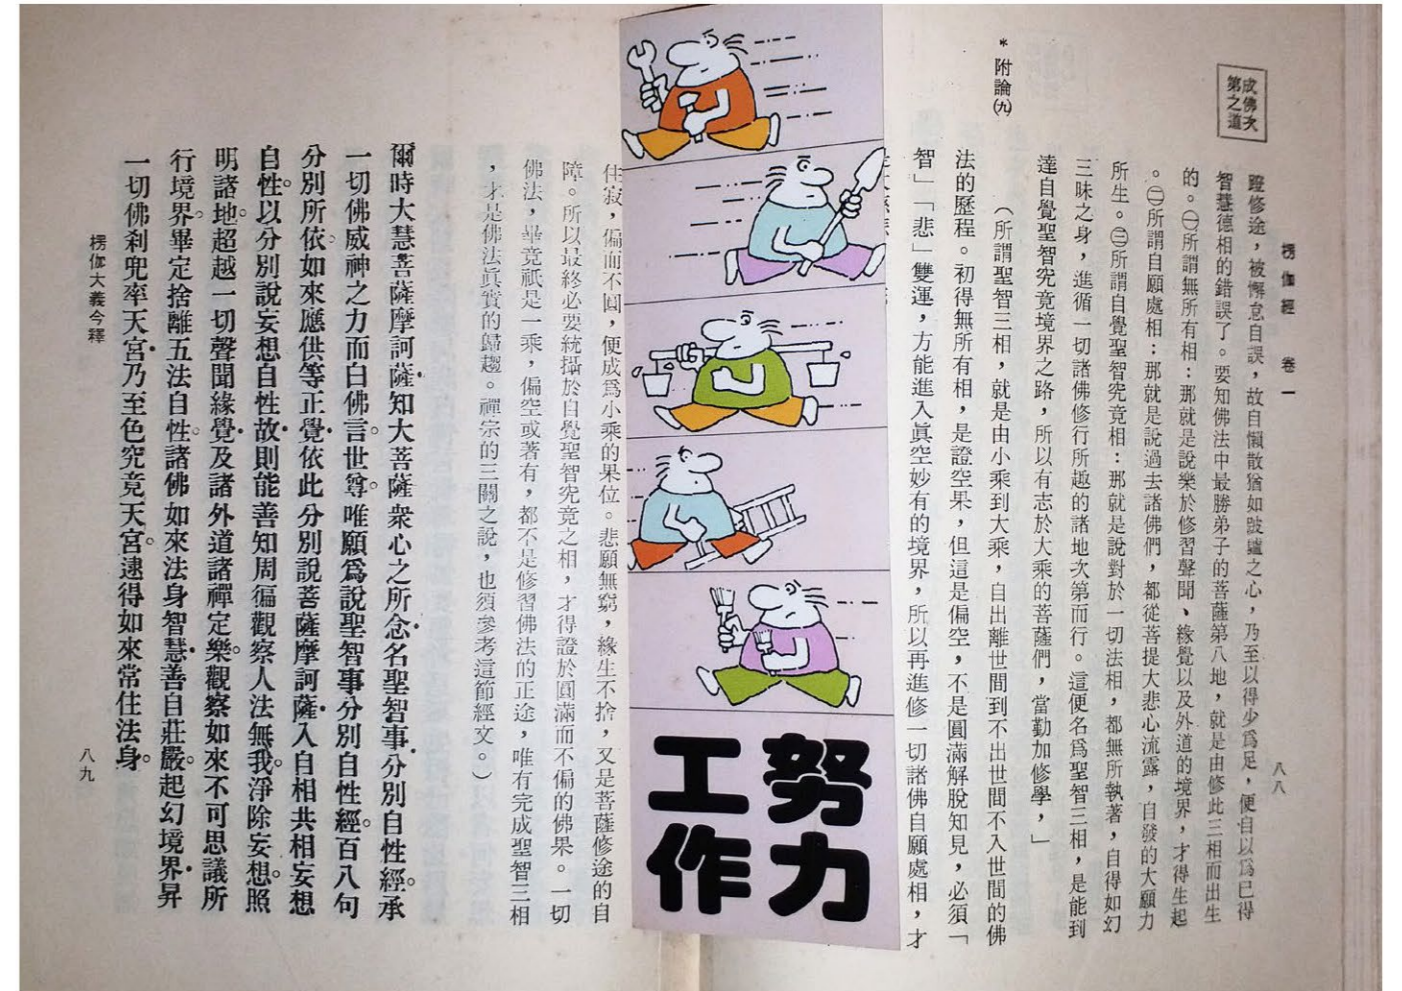 成佛次
第之道
楞伽經　卷一
八八
蹬修途，被懈怠自誤，故自懶散猶如跛驢之心，乃至以得少爲足，便自以爲已得
智慧德相的錯誤了。要知佛法中最勝弟子的菩薩第八地，就是由修此三相而出生
的。㊀所謂無所有相：那就是說樂於修習聲聞、緣覺以及外道的境界，才得生起
。㊁所謂自願處相：那就是說過去諸佛們，都從菩提大悲心流露，自發的大願力
所生。㊂所謂自覺聖智究竟相：那就是說對於一切法相，都無所執著，自得如幻
三昧之身，進循一切諸佛修行所趣的諸地次第而行。這便名爲聖智三相，是能到
達自覺聖智究竟境界之路，所以有志於大乘的菩薩們，當勤加修學，」
＊附論㈨
（所謂聖智三相，就是由小乘到大乘，自出離世間到不出世間不入世間的佛
法的歷程。初得無所有相，是證空果，但這是偏空，不是圓滿解脫知見，必須「
智」「悲」雙運，方能進入眞空妙有的境界，所以再進修一切諸佛自願處相，才
努力
工作
住寂，偏而不圓，便成爲小乘的果位。悲願無窮，緣生不捨，又是菩薩修途的自
障。所以最終必要統攝於自覺聖智究竟之相，才得證於圓滿而不偏的佛果。一切
佛法，畢竟祇是一乘，偏空或著有，都不是修習佛法的正途，唯有完成聖智三相
，才是佛法眞實的歸趨。禪宗的三關之說，也須參考這節經文。）
爾時大慧菩薩摩訶薩知大菩薩衆心之所念名聖智事分別自性經。承
一切佛威神之力而白佛言。世尊。唯願爲說聖智事分別自性經。百八句
分別所依。如來應供等正覺依此分別說菩薩摩訶薩入自相共相妄想
自性。以分別說妄想自性故則能善知周徧觀察人法無我淨除妄想。照
明諸地。超越一切聲聞緣覺及諸外道諸禪定樂。觀察如來不可思議所
行境界。畢定捨離五法自性。諸佛如來法身智慧善自莊嚴。起幻境界昇
一切佛刹兜率天宮乃至色究竟天宮。逮得如來常住法身。
楞伽大義今釋
八九